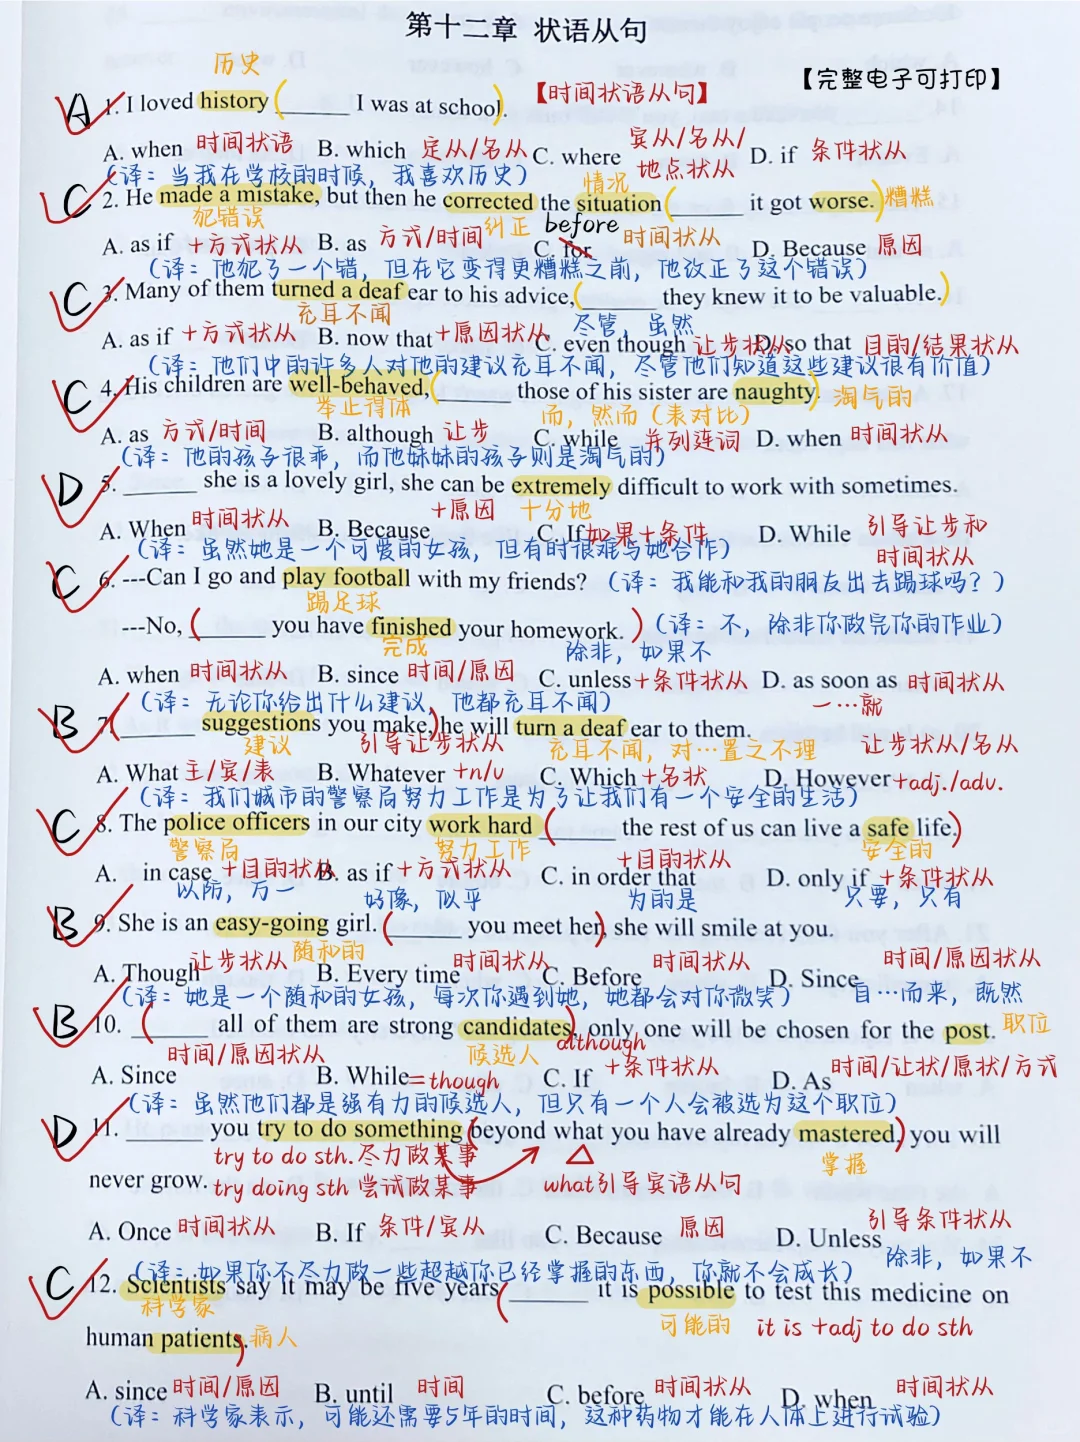 第十二章 状语从句
历史
【时间状语从句】 【完整电子可打印】
A 1. I loved history (______ I was at school)
A. when 时间状语 B. which 定从/名从 C. where 宾从/名从/地点状从 D. if 条件状从
(译：当我在学校的时候，我喜欢历史)
情况
C 2. He made a mistake, but then he corrected the situation (______ it got worse.) 糟糕
犯错误 纠正 before
A. as if +方式状从 B. as 方式/时间 C. for 时间状从 D. Because 原因
(译：他犯了一个错，但在它变得更糟糕之前，他改正了这个错误)
C 3. Many of them turned a deaf ear to his advice, (______ they knew it to be valuable.)
充耳不闻 尽管，虽然
A. as if +方式状从 B. now that +原因状从 C. even though 让步状从 D. so that 目的/结果状从
(译：他们中的许多人对他的建议充耳不闻，尽管他们知道这些建议很有价值)
C 4. His children are well-behaved, (______ those of his sister are naughty). 淘气的
举止得体 而，然而（表对比）
A. as 方式/时间 B. although 让步 C. while 并列连词 D. when 时间状从
(译：他的孩子很乖，而他妹妹的孩子则是淘气的)
D 5. ______ she is a lovely girl, she can be extremely difficult to work with sometimes.
十分地
A. When 时间状从 B. Because +原因 C. If 如果+条件 D. While 引导让步和时间状从
(译：虽然她是一个可爱的女孩，但有时很难与她合作)
C 6. ---Can I go and play football with my friends? (译：我能和我的朋友出去踢球吗？)
踢足球
---No, (______ you have finished your homework.) (译：不，除非你做完你的作业)
完成 除非，如果不
A. when 时间状从 B. since 时间/原因 C. unless +条件状从 D. as soon as 时间状从
一…就
(译：无论你给出什么建议，他都充耳不闻)
B 7. ______ suggestions you make,) he will turn a deaf ear to them.
建议 引导让步状从 充耳不闻，对…置之不理 让步状从/名从
A. What 主/宾/表 B. Whatever +n/v C. Which +名状 D. However +adj./adv.
(译：我们城市的警察局努力工作是为了让我们有一个安全的生活)
C 8. The police officers in our city work hard (______ the rest of us can live a safe life.)
警察局 努力工作 安全的
A. in case +目的状从 B. as if +方式状从 C. in order that +目的状从 D. only if +条件状从
以防，万一 好像，似乎 为的是 只要，只有
B 9. She is an easy-going girl. (______ you meet her), she will smile at you.
随和的
A. Though 让步状从 B. Every time 时间状从 C. Before 时间状从 D. Since 时间/原因状从
(译：她是一个随和的女孩，每次你遇到她，她都会对你微笑) 自…而来，既然
B 10. (______ all of them are strong candidates), only one will be chosen for the post. 职位
候选人 although
A. Since 时间/原因状从 B. While =though C. If +条件状从 D. As 时间/让状/原状/方式
(译：虽然他们都是强有力的候选人，但只有一个人会被选为这个职位)
D 11. ______ you try to do something (beyond what you have already mastered,) you will
掌握
never grow. try to do sth.尽力做某事 △
try doing sth 尝试做某事 what引导宾语从句
A. Once 时间状从 B. If 条件/宾从 C. Because 原因 D. Unless 引导条件状从
除非，如果不
(译：如果你不尽力做一些超越你已经掌握的东西，你就不会成长)
C 12. Scientists say it may be five years (______ it is possible to test this medicine on
科学家 可能的 it is +adj to do sth
human patients.) 病人
A. since 时间/原因 B. until 时间 C. before 时间状从 D. when 时间状从
(译：科学家表示，可能还需要5年的时间，这种药物才能在人体上进行试验)